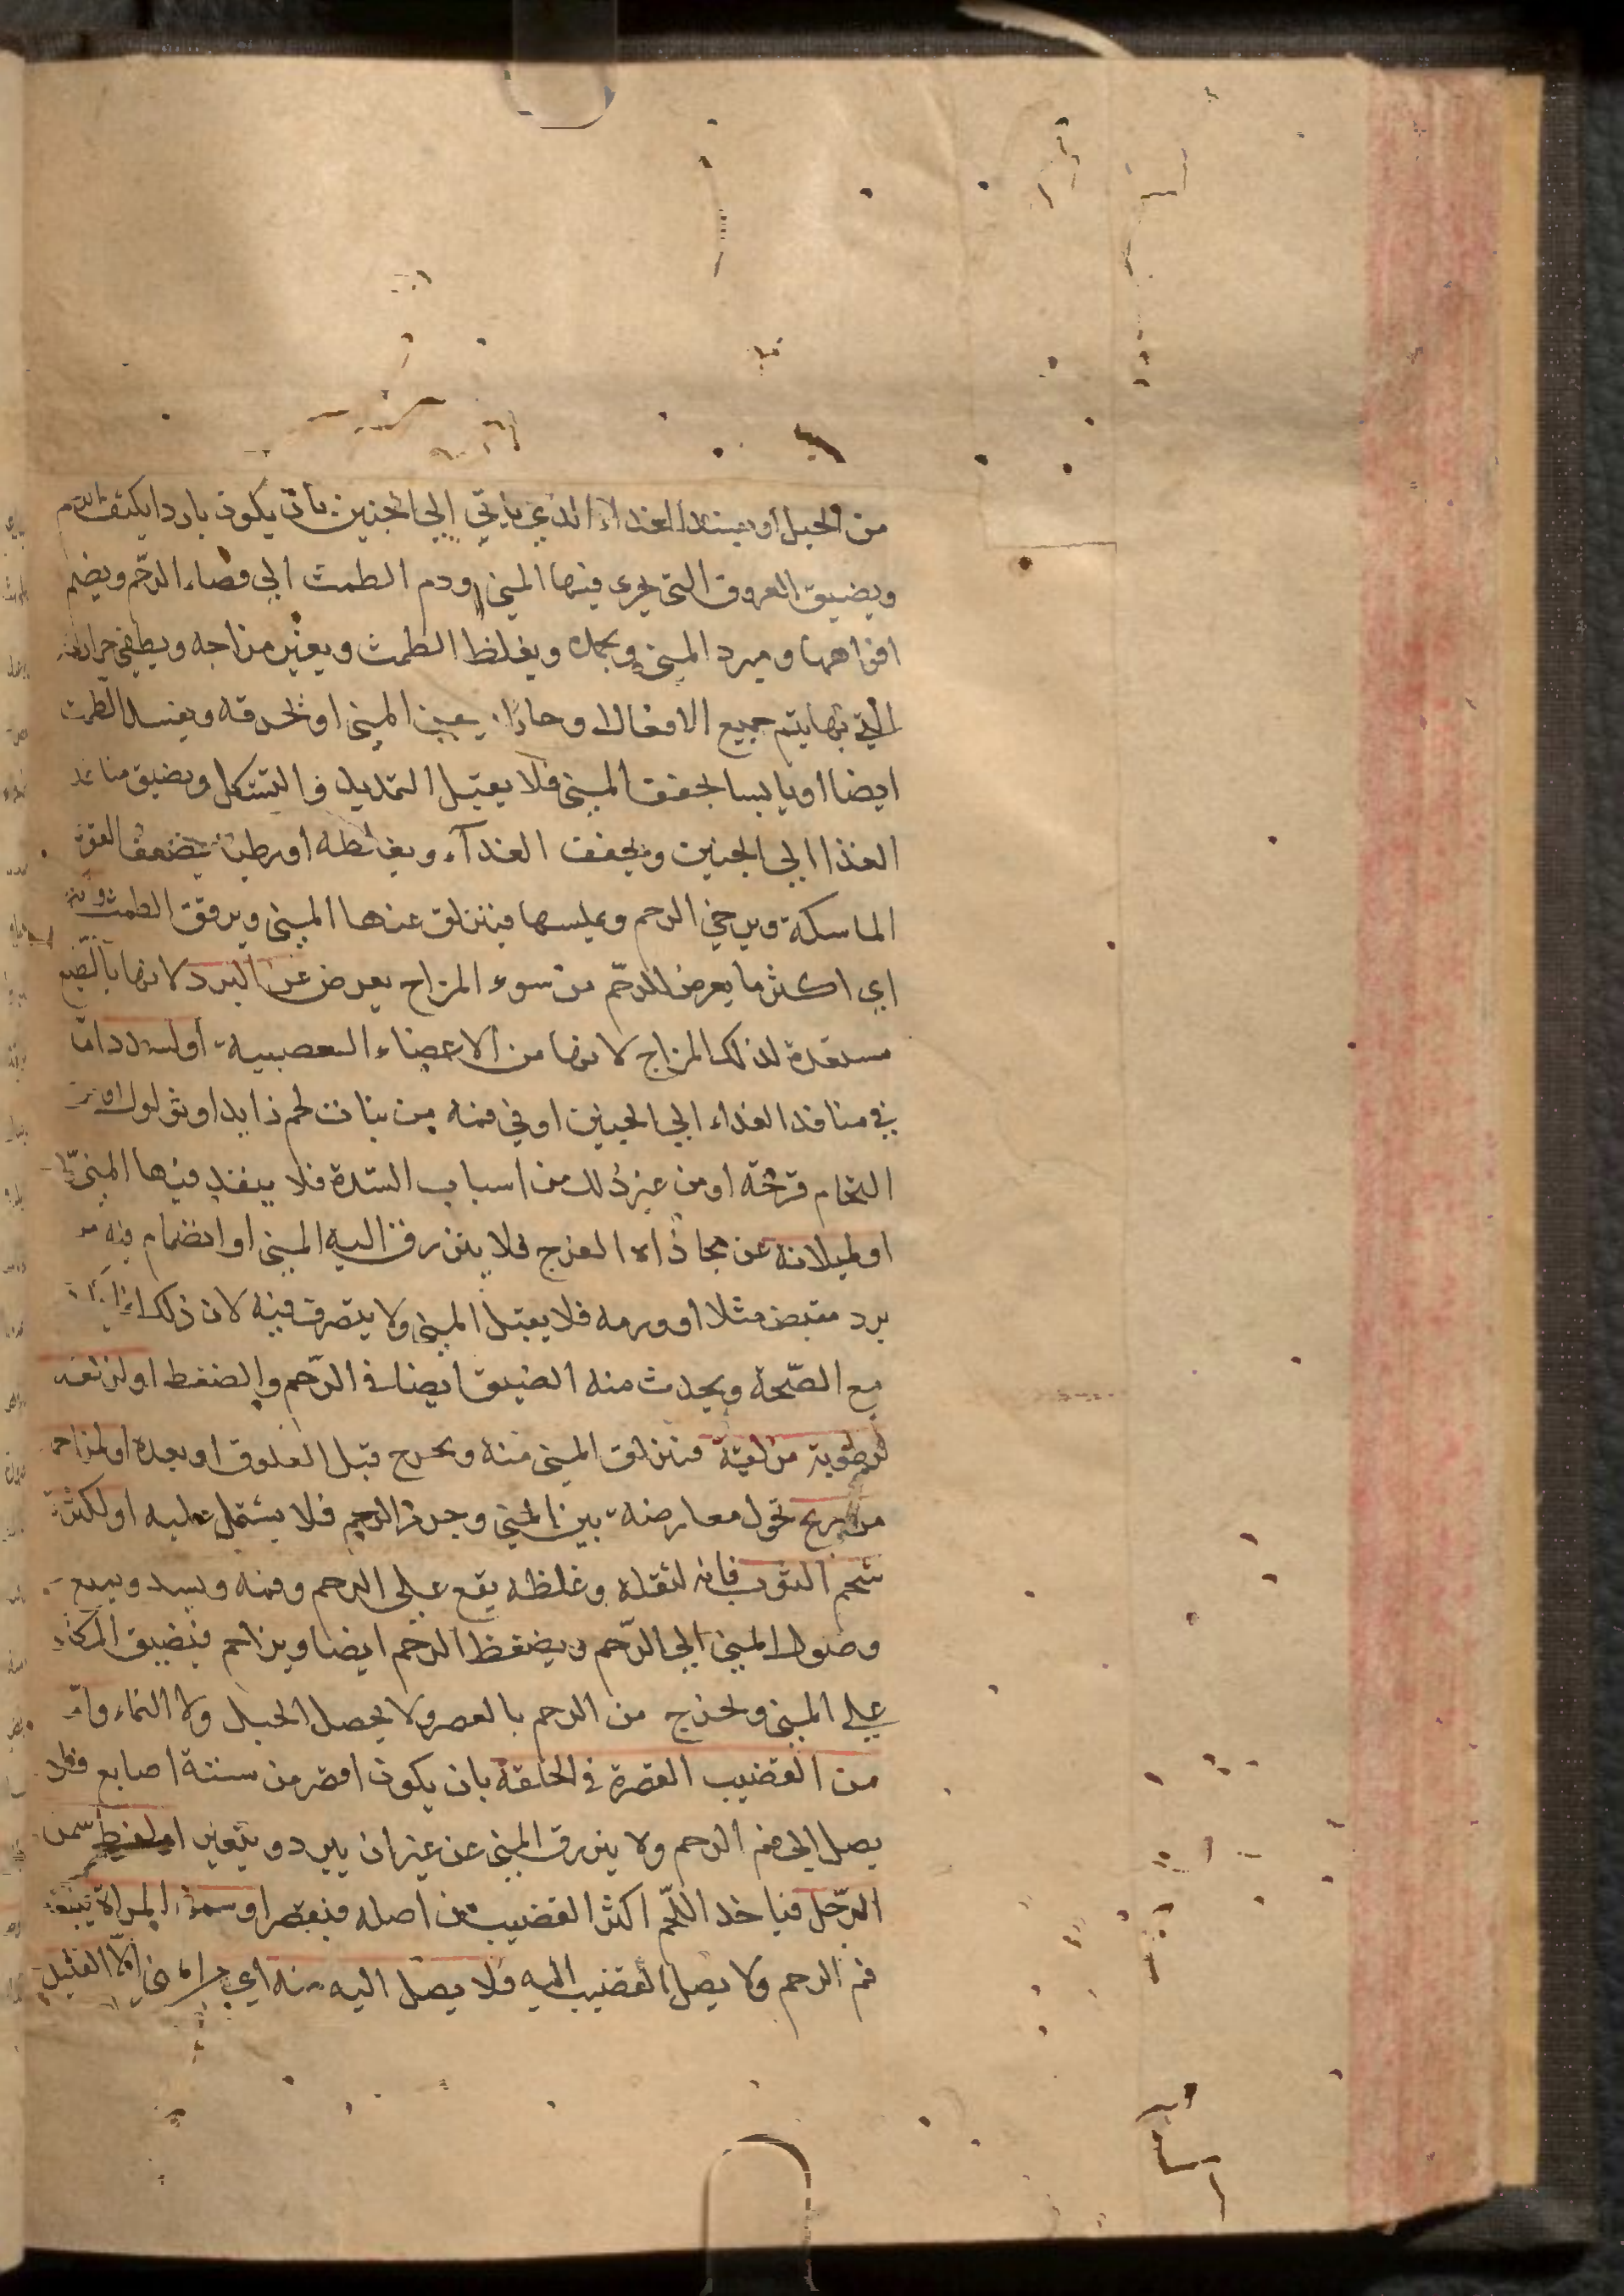 من الحبل او يفسد الغذاء الذي ياتي الي الجنين بان يكون باردا يكثف الدم
ويضيق العروق التي يجري فيها المني ودم الطمث الي فضاء الرحم ويضم
افواهها ويبرد المني ويجمده ويغلظ الطمث ويغير مزاجه ويطفي حرارته
التي بها يتم جميع الافعال او حارا يعين المني او تحرقه ويفسد الطمث
ايضا او يابسا يجفف المني فلا يقبل التمديد والتشكل ويضيق منافذ
الغذا الي الجنين ويجفف الغذآء ويغلظه او رطبا يضعف القوة
الماسكة ويرخي الرحم ويملسها فينزلق عنها المني ويرقق الطمث
اي اكثر ما يعرض للرحم من سوء المزاج يعرض عن البرد لانها بالطبع
مستعدة لذلك المزاج لانها من الاعضاء العصبية او لسدد اما
في منافذ الغذاء الي الجنين او في فمه من نبات لحم زايد او ثؤلول او
التحام قرحة او من غير ذلك من اسباب السدة فلا ينفذ فيها المني
او لميلانه عن محاذاه الفرج فلا ينزرق اليه المني او انضمام فيه
برد مقبض مثلا او ورمه فلا يقبل المني ولا يتصرف فيه لان ذلك
مع الصحة ويحدث منه الضيق ايضا في الرحم والضغط او لزلقه
لرطوبة مزلقة فينزلق المني منه ويخرج قبل العلوق او بعده او لمزاحم
من ريح تحول معارضة بين المني وجرم الرحم فلا يشتمل عليه او لكثرة
شحم الثرب فانه لثقله وغلظه يقع علي الرحم وفمه ويسد ويمنع
وصول المني الي الرحم ويضغط الرحم ايضا ويزاحم فيضيق المكان
علي المني ويخرج من الرحم بالعصر ولا يحصل الحبل ولا النماء واما
من القضيب القصرة في الخلقة بان يكون اقصر من ستة اصابع فلا
يصل الي فم الرحم ولا ينزرق المني عن غير ان يبرد ويتغير او لفرط سمن
الرجل فياخذ اللحم اكثر القضيب من اصله فيقصر او سمن المراة
فم الرحم ولا يصل القضيب اليه فلا يصل اليه منه اي الا القليل